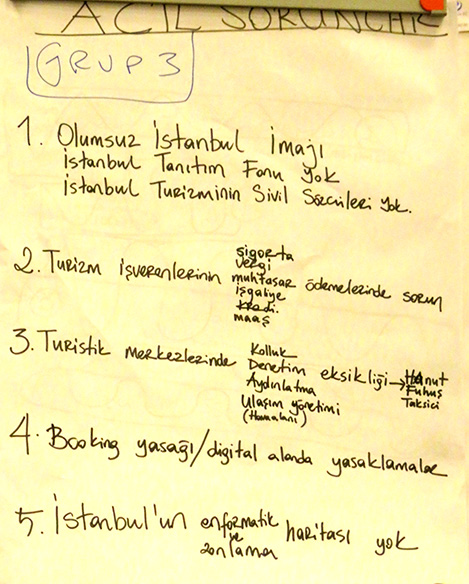 ACİL SORUNLAR
GRUP 3
1. Olumsuz İstanbul İmajı
İstanbul Tanıtım Fonu Yok
İstanbul Turizminin Sivil Sözcüleri Yok.
2. Turizm işverenlerinin sigorta vergi muhtasar işgaliye kredi. maaş ödemelerinde sorun
3. Turistik merkezlerinde Kolluk Denetim Aydınlatma Ulaşım yönetimi eksikliği → Hanut Fuhuş Taksici
4. Booking yasağı/digital alanda yasaklamalar
5. İstanbul'un enformatik ve zonlama haritası yok